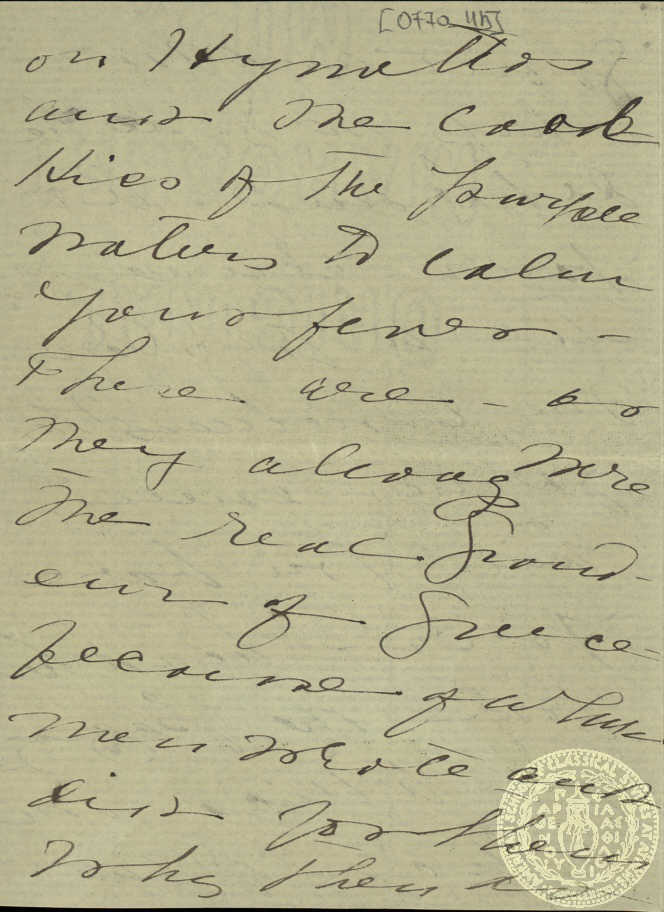 [0770 4b]
on Hymettos
and the cool
kies of the purple
waters to calm
your fever -
These are - as
they always were
the real Grand-
eur of Greece -
because of which
men wrote and
did for them
why then